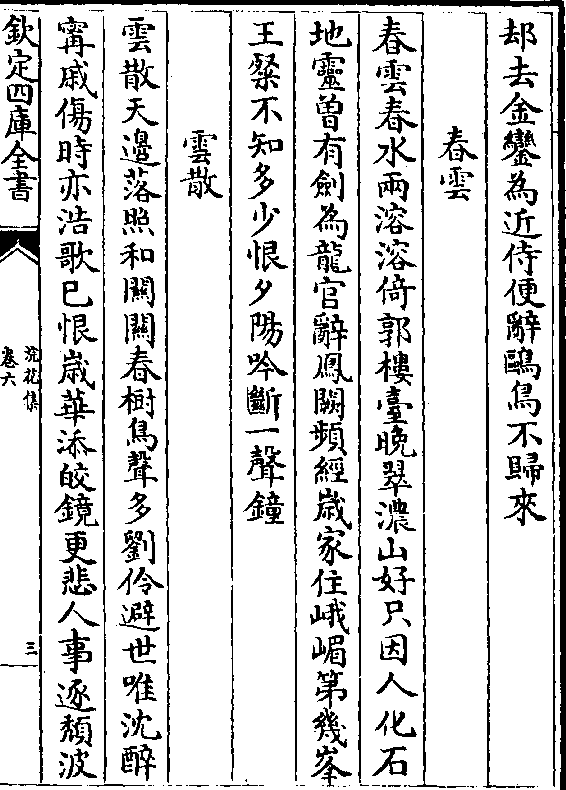 却去金鑾為近侍便辭鷗鳥不歸來
春雲
春雲春水兩溶溶倚郭樓臺晚翠濃山好只因人化石
地靈曽有劍為龍官辭鳳闕頻經歲家住峨嵋第幾峯
王粲不知多少恨夕陽吟斷一聲鐘
雲散
雲散天邉落照和關關春樹鳥聲多劉伶避世唯沈醉
甯戚傷時亦浩歌已恨歲華添皎鏡更悲人事逐頽波
欽定四庫全書
浣花集
卷六
三